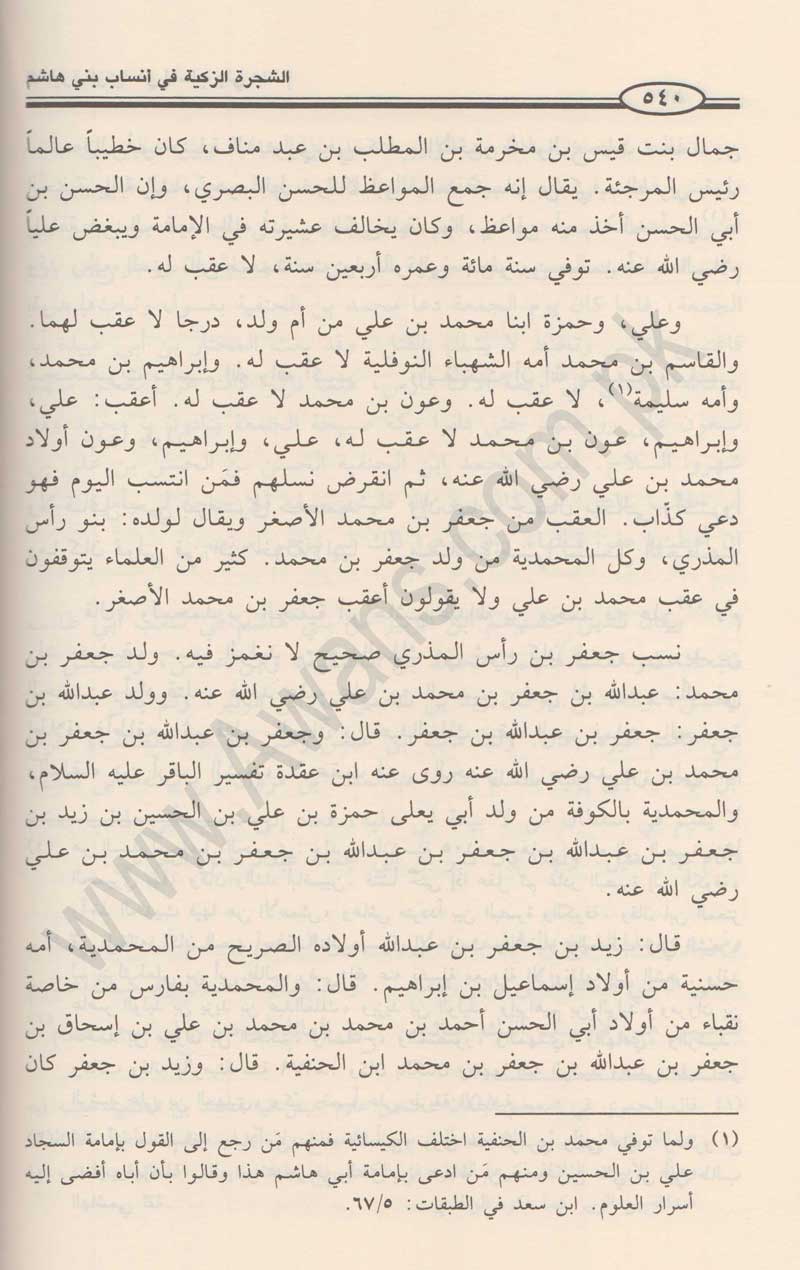 الشجرة الزكية في أنساب بني هاشم
٥٤٠
جمال بنت قيس بن مخرمة بن المطلب بن عبد مناف، كان خطيباً عالماً
رئيس المرجئة. يقال إنه جمع المواعظ للحسن البصري، وإن الحسن بن
أبي الحسن أخذ منه مواعظ، وكان يخالف عشيرته في الإمامة ويبغض علياً
رضي الله عنه. توفي سنة مائة وعمره أربعين سنة، لا عقب له.
وعلي، وحمزة ابنا محمد بن علي من أم ولد، درجا لا عقب لهما.
والقاسم بن محمد أمه الشهباء النوفلية لا عقب له. وإبراهيم بن محمد،
وأمه سليمة(١)، لا عقب له. وعون بن محمد لا عقب له. أعقب: علي،
وإبراهيم، عون بن محمد لا عقب له، علي، وإبراهيم، وعون أولاد
محمد بن علي رضي الله عنه، ثم انقرض نسلهم فمَن انتسب اليوم فهو
دعي كذّاب. العقب من جعفر بن محمد الأصغر ويقال لولده: بنو رأس
المذري، وكل المحمدية من ولد جعفر بن محمد. كثير من العلماء يتوقفون
في عقب محمد بن علي ولا يقولون أعقب جعفر بن محمد الأصغر.
نسب جعفر بن رأس المذري صحيح لا نغمز فيه. ولد جعفر بن
محمد: عبدالله بن جعفر بن محمد بن علي رضي الله عنه. وولد عبدالله بن
جعفر: جعفر بن عبدالله بن جعفر. قال: وجعفر بن عبدالله بن جعفر بن
محمد بن علي رضي الله عنه روى عنه ابن عقدة تفسير الباقر عليه السلام،
والمحمدية بالكوفة من ولد أبي يعلى حمزة بن علي بن الحسين بن زيد بن
جعفر بن عبدالله بن جعفر بن عبدالله بن جعفر بن محمد بن علي
رضي الله عنه.
قال: زيد بن جعفر بن عبدالله أولاده الصريح من المحمدية، أمه
حسنية من أولاد إسماعيل بن إبراهيم. قال: والمحمدية بفارس من خاصة
نقباء من أولاد أبي الحسن أحمد بن محمد بن محمد بن علي بن إسحاق بن
جعفر بن عبدالله بن جعفر بن محمد ابن الحنفية. قال: وزيد بن جعفر كان
(١) ولما توفي محمد بن الحنفية اختلف الكيسائية فمنهم مَن رجع إلى القول بإمامة السجاد
علي بن الحسين ومنهم مَن ادعى بإمامة أبي هاشم هذا وقالوا بأن أباه أفضى إليه
أسرار العلوم. ابن سعد في الطبقات: ٦٧/٥.
www.Awans.com.pk